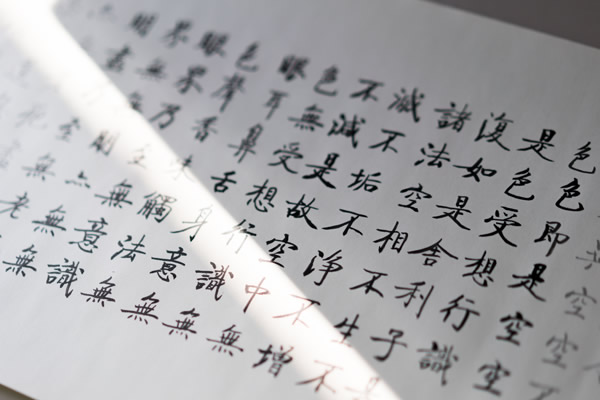 色色即是空空
是色受想行識
復如是舍利子是
諸法空相不生不
滅不垢不淨不增
不減是故空中無
色無受想行識無
眼耳鼻舌身意無
色聲香味觸法無
眼界乃至無意識
界無
老無